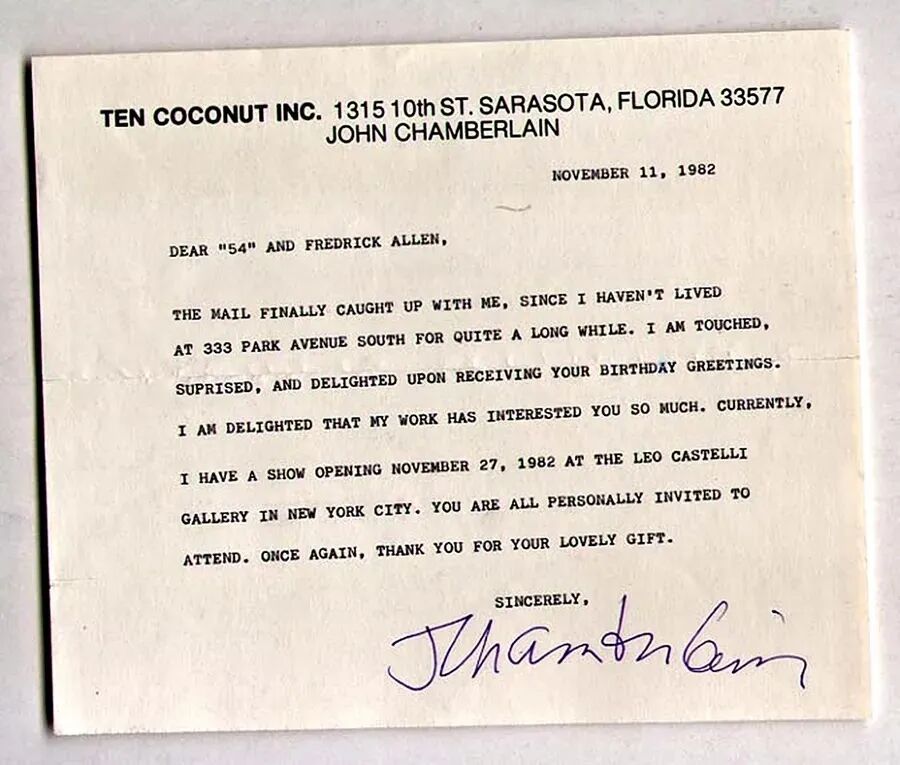 TEN COCONUT INC. 1315 10th ST. SARASOTA, FLORIDA 33577
JOHN CHAMBERLAIN
NOVEMBER 11, 1982
DEAR "54" AND FREDRICK ALLEN,
THE MAIL FINALLY CAUGHT UP WITH ME, SINCE I HAVEN'T LIVED
AT 333 PARK AVENUE SOUTH FOR QUITE A LONG WHILE. I AM TOUCHED,
SUPRISED, AND DELIGHTED UPON RECEIVING YOUR BIRTHDAY GREETINGS.
I AM DELIGHTED THAT MY WORK HAS INTERESTED YOU SO MUCH. CURRENTLY,
I HAVE A SHOW OPENING NOVEMBER 27, 1982 AT THE LEO CASTELLI
GALLERY IN NEW YORK CITY. YOU ARE ALL PERSONALLY INVITED TO
ATTEND. ONCE AGAIN, THANK YOU FOR YOUR LOVELY GIFT.
SINCERELY,
JChamberlain